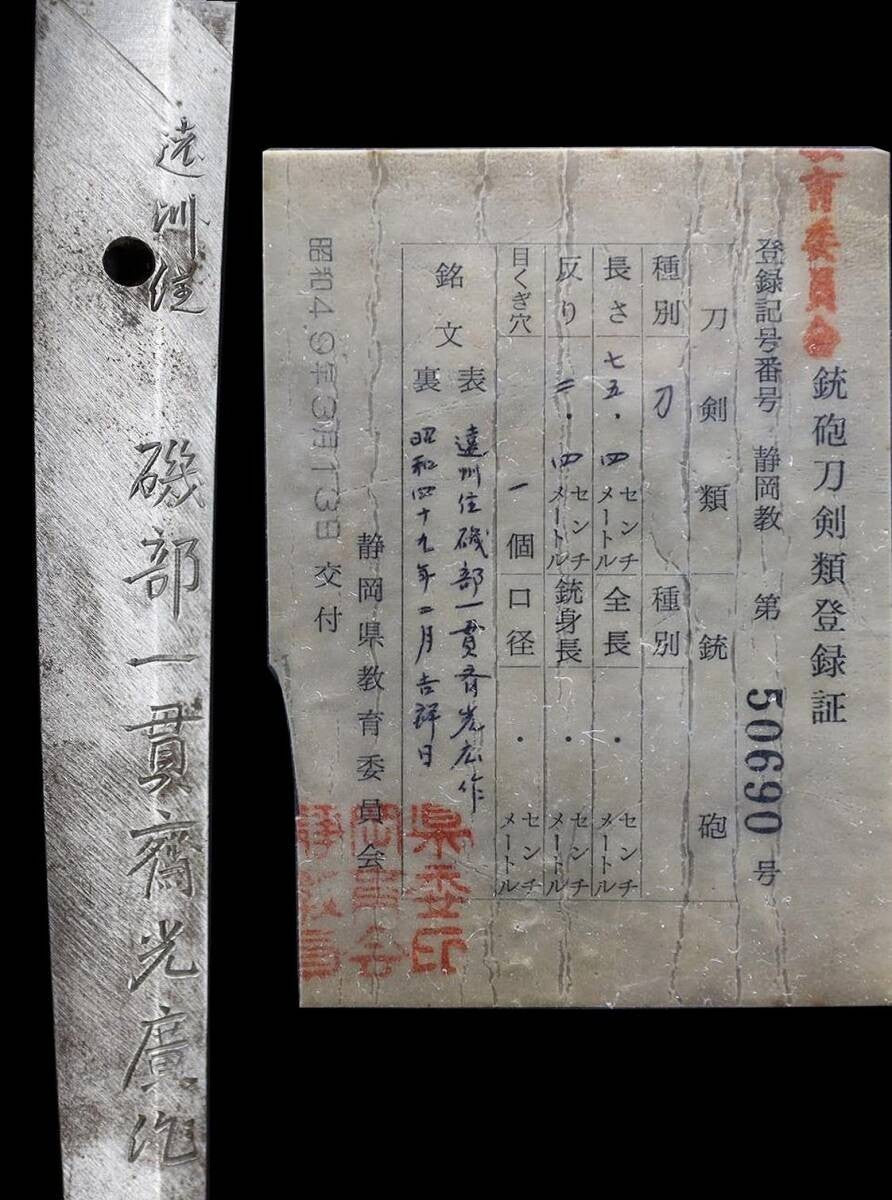 遠州住
磯部一貫齊光廣作
育委員会
銃砲刀剣類登録証
登録記号番号 静岡教 第 50690 号
刀剣類 銃砲
種別 刀 種別
長さ 七五.四 センチメートル 全長 . センチメートル
反り 二.四 センチメートル 銃身長 . センチメートル
目くぎ穴 一 個 口径 . センチメートル
銘文 表 遠州住磯部一貫斉光広作
裏 昭和四十九年二月吉祥日
静岡県教育委員会
昭和49年3月13日 交付